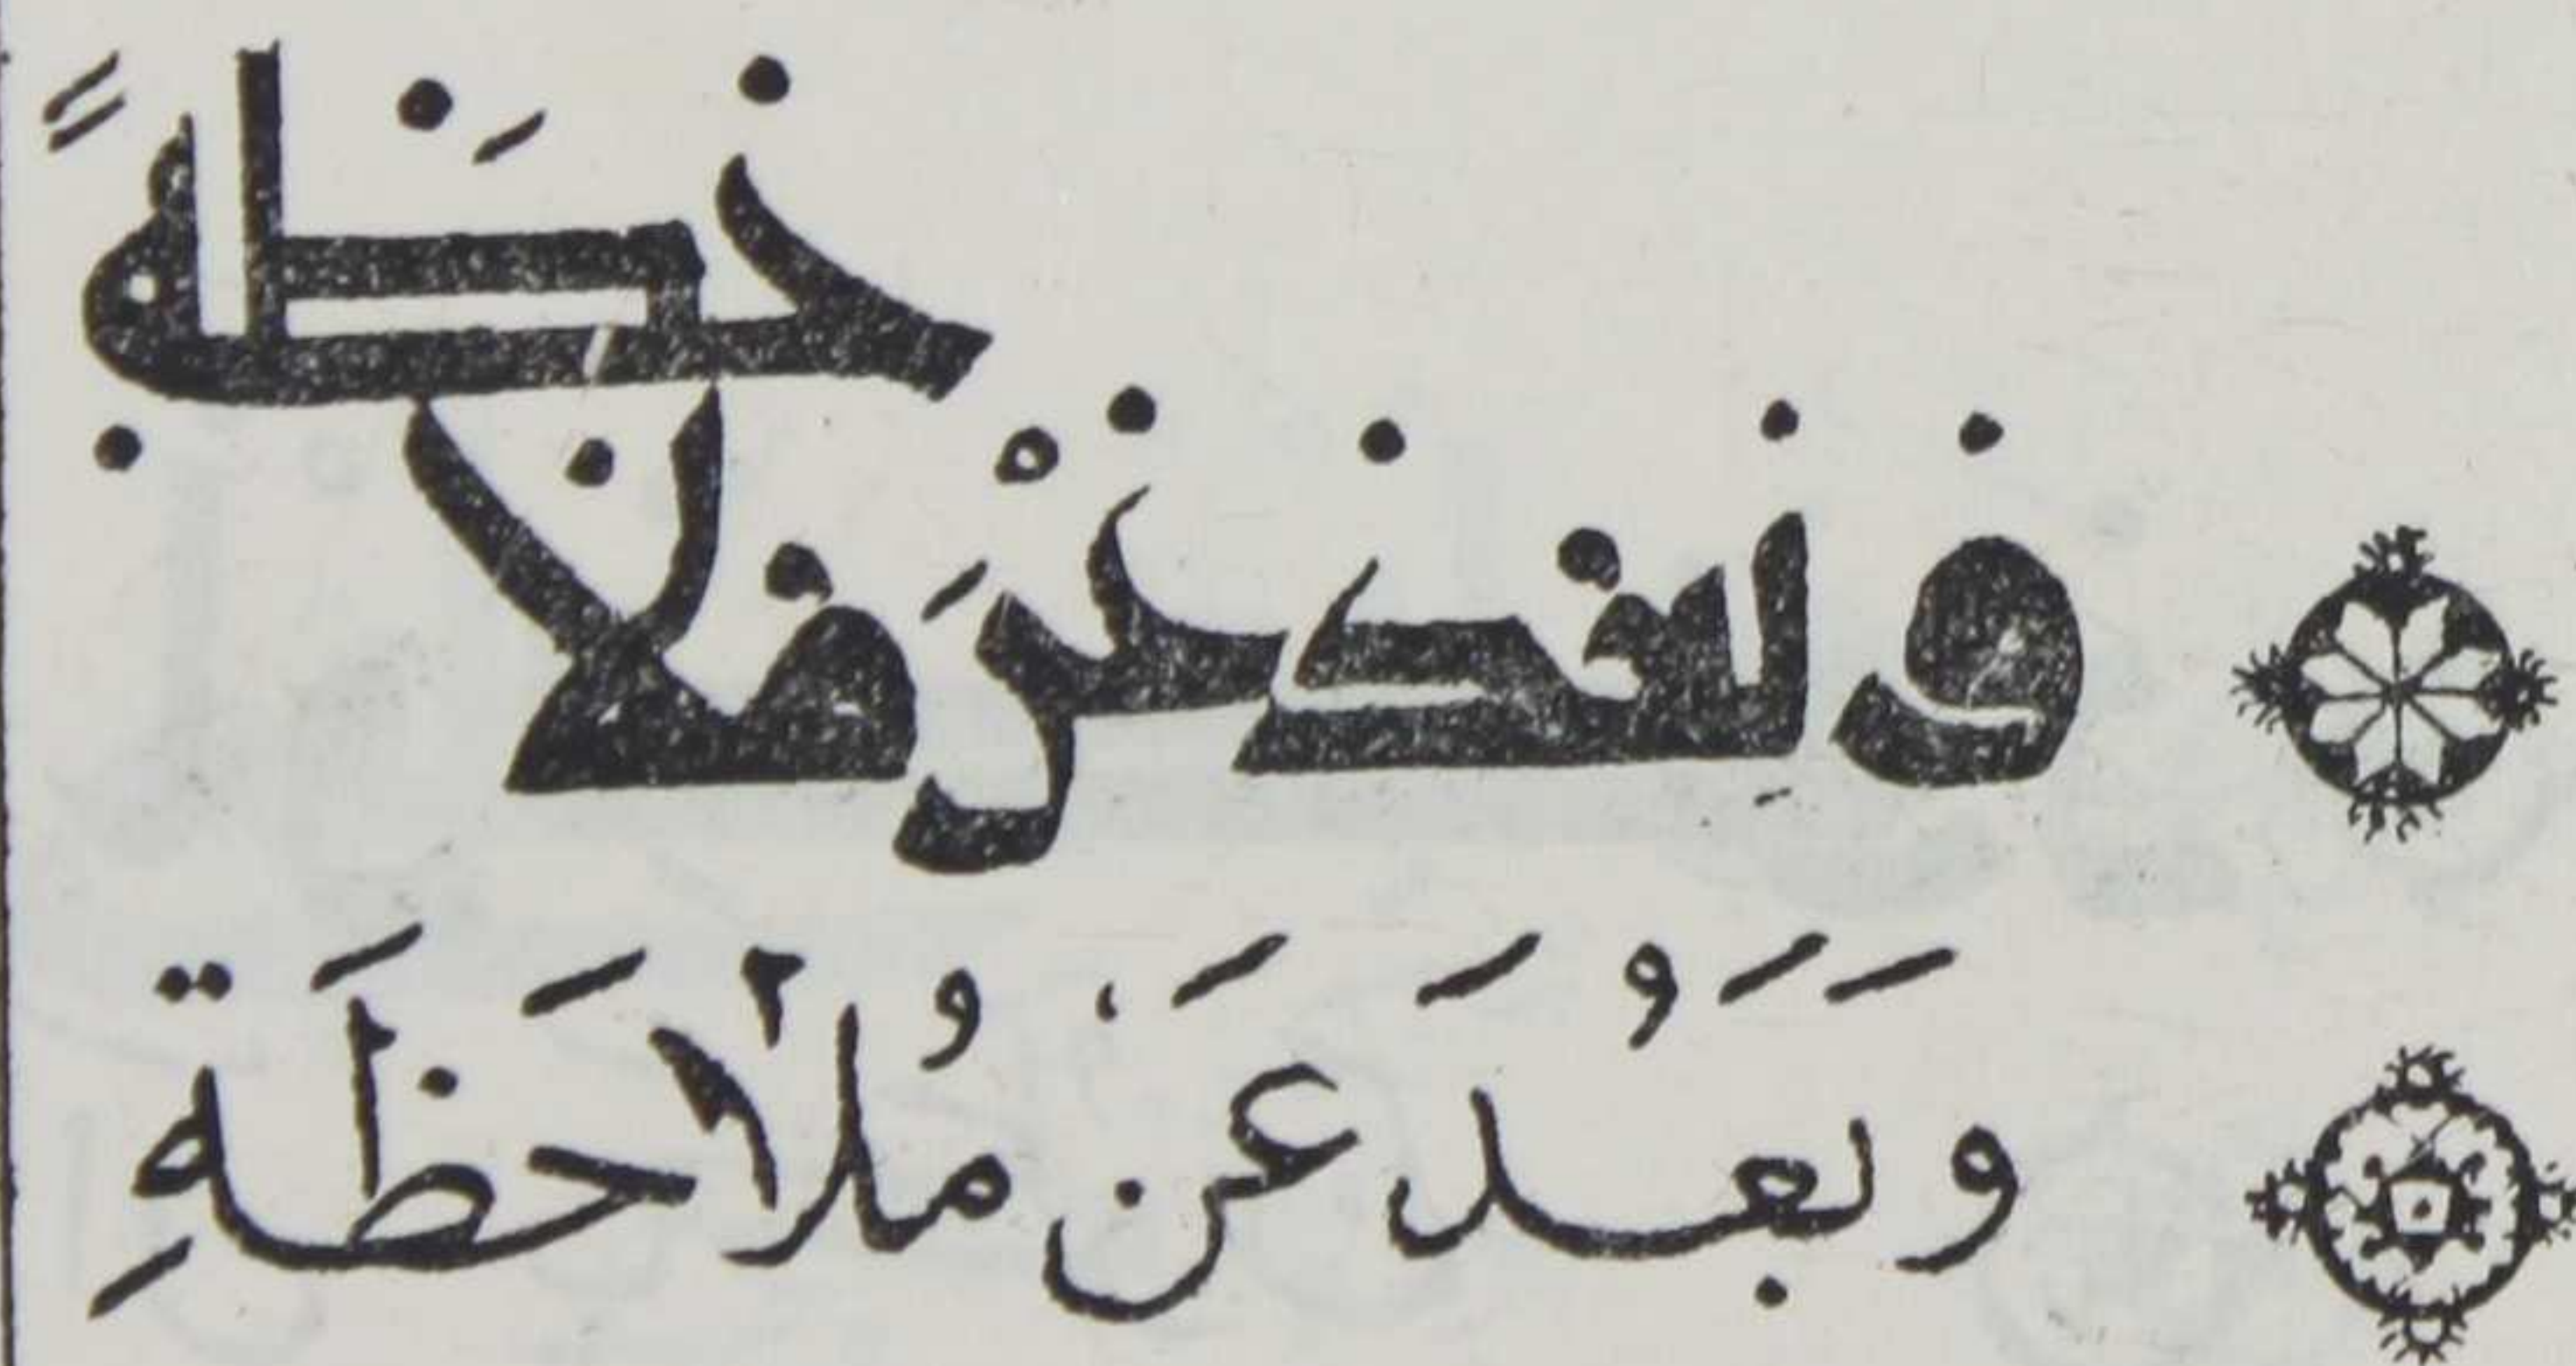 وبعد عن ملاحظه
وَبَعُدَ عَنْ مُلَاحَظَةِ